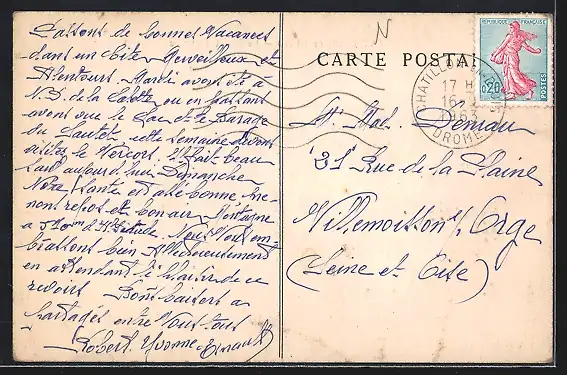 Passons de bonnes Vacances
dans un Site Merveilleux et
Alentours. Mardi avons été à
N.D. de la Salette ou en passant
avons vue le Lac et le Barage
du Sautet, cette Semaine devons
visiter le Vercors. Il fait beau
sauf aujourd'hui Dimanche
Notre Santé est allé bonne, me-
nont repos et bon air Montagne
à 510m d'Altitude. Nous Vous em-
brassons bien Affectueusement
en attendant le plaisir de ce
revoir. Bons baisers a
partagés entre Vous tous
Robert, Yvonne
N
CARTE POSTALE
REPUBLIQUE FRANÇAISE
0,20
POSTES
CHATILLON-EN-DIOIS
17 H
1963
DROME
Mr Mme
31 Rue de la Plaine
Villemoisson s/ Orge
(Seine et Oise)